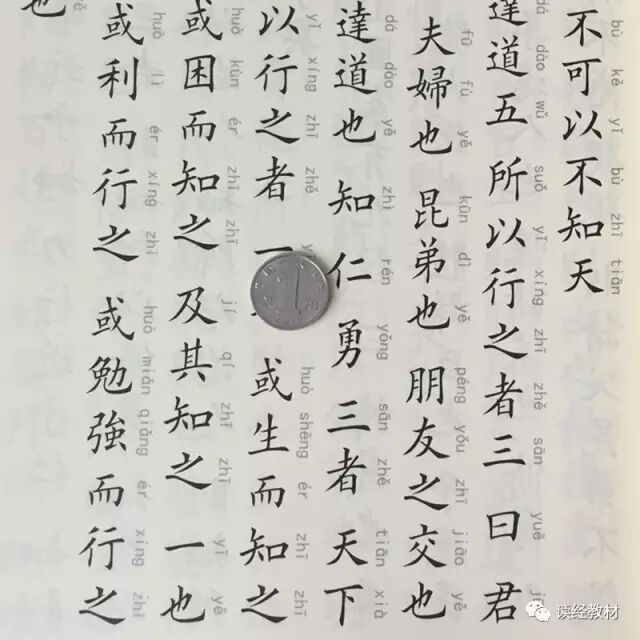 bù kě yǐ bù zhī tiān
不可以不知天
dá dào wǔ suǒ yǐ xíng zhī zhě sān yuē
達道五 所以行之者三 曰 君
fū fù yě kūn dì yě péng yǒu zhī jiāo yě
夫婦也 昆弟也 朋友之交也
dá dào yě zhì rén yǒng sān zhě tiān xià
達道也 知仁勇三者 天下
yǐ xíng zhī zhě huò shēng ér zhī zhī
以行之者一 或生而知之
huò kùn ér zhī zhī jí qí zhī zhī yī yě
或困而知之 及其知之 一也
huò lì ér xíng zhī huò miǎn qiǎng ér xíng zhī
或利而行之 或勉強而行之
也
读经教材